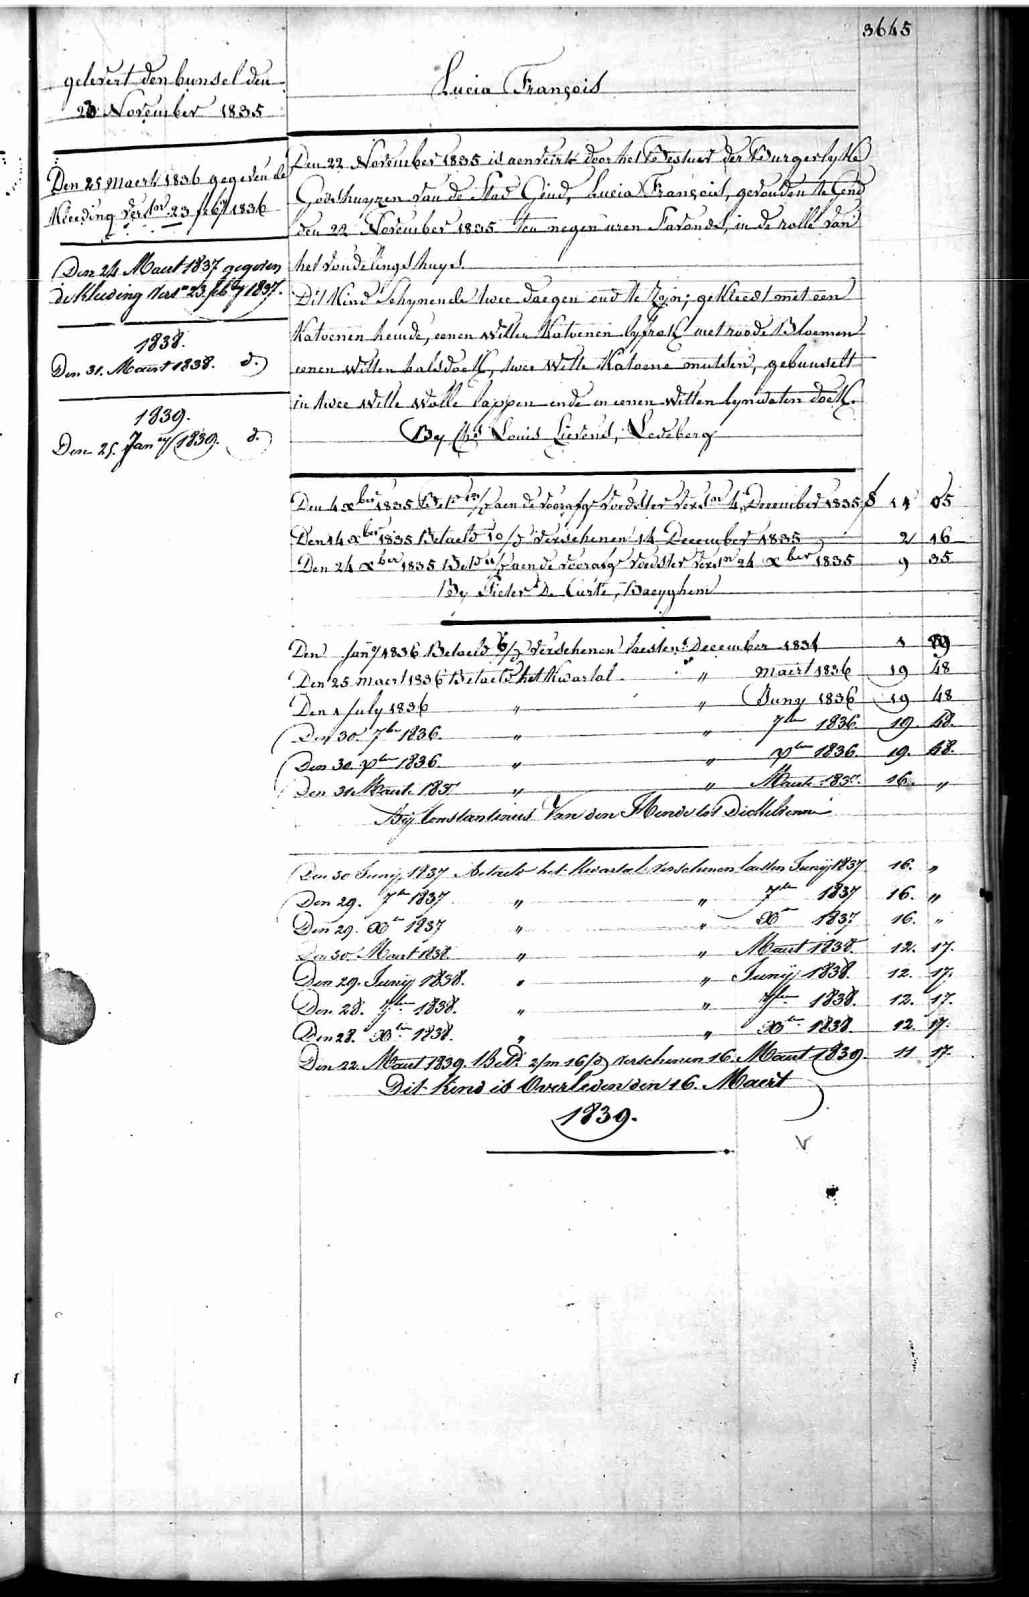 3645
gelevert den bunsel den
23 November 1835
Den 25 Maert 1836 gegeven de
Kleeding vers.en 23 feb.y 1836
Den 24 Maert 1837 gegeven
de kleeding vers.n 23 feb.y 1837.
1838.
Den 31. Maert 1838. d.o
1839.
Den 25. Jan.y 1839. d.o
Lucia François
Den 22 November 1835 is aenveirt door het Bestuer der Burgerlyke
Godshuyzen van de Stad Gend, Lucia François, gevonden te Gend
den 22 November 1835 ten negen uren s'avonds, in de rolle van
het vondelingshuys.
Dit Kind schynende twee daegen oud te zyn; gekleedt met een
Katoenen hemde, eenen witten Katoenen lyfrok met roode Bloemen
eenen witten halsdoek, twee witte Katoene mutsen, gebunselt
in twee witte wolle lappen ende in eenen witten lynwaten doek.
By Ch.s Louis Lievens, Ledeberg
Den 4 xber 1835 aen de voorafg.e voedster vers.en 4 December 1835 f 14 05
Den 14 xber 1835 Betaeld 10/d verschenen 14 December 1835 2 16
Den 24 xber 1835 aen de voorafg.e voedster vers.en 24 xber 1835 9 35
By Pieter De Curte, Baeyghem
Den Jan.y 1836 Betaeld 6/d verschenen laesten December 1835 1
Den 25 maert 1836 Betaeld het Kwartal " maert 1836 19 48
Den 1 July 1836 " " Juny 1836 19 48
Den 30. 7ber 1836. " " 7ber 1836 19. 48.
Den 30. xber 1836. " " xber 1836. 19. 48.
Den 31 Maert 1837. " " Maert 1837. 16. "
Bij Constantinus Van den Hende tot Dickelvenne
Den 30 Junij 1837 Betaeld het Kwartal verschenen laesten Junij 1837 16. "
Den 29. 7ber 1837 " " 7ber 1837 16. "
Den 29. Xber 1837 " " Xber 1837 16. "
Den 30 Maert 1838. " " Maert 1838. 12. 17.
Den 29. Junij 1838. " " Junij 1838. 12. 17.
Den 28. 7ber 1838. " " 7ber 1838. 12. 17.
Den 28. Xber 1838. " " Xber 1838. 12. 17.
Den 22. Maert 1839. Bet.d 2/m 16/d verschenen 16. Maert 1839. 11 17.
Dit Kind is Overleden den 16. Maert
1839.